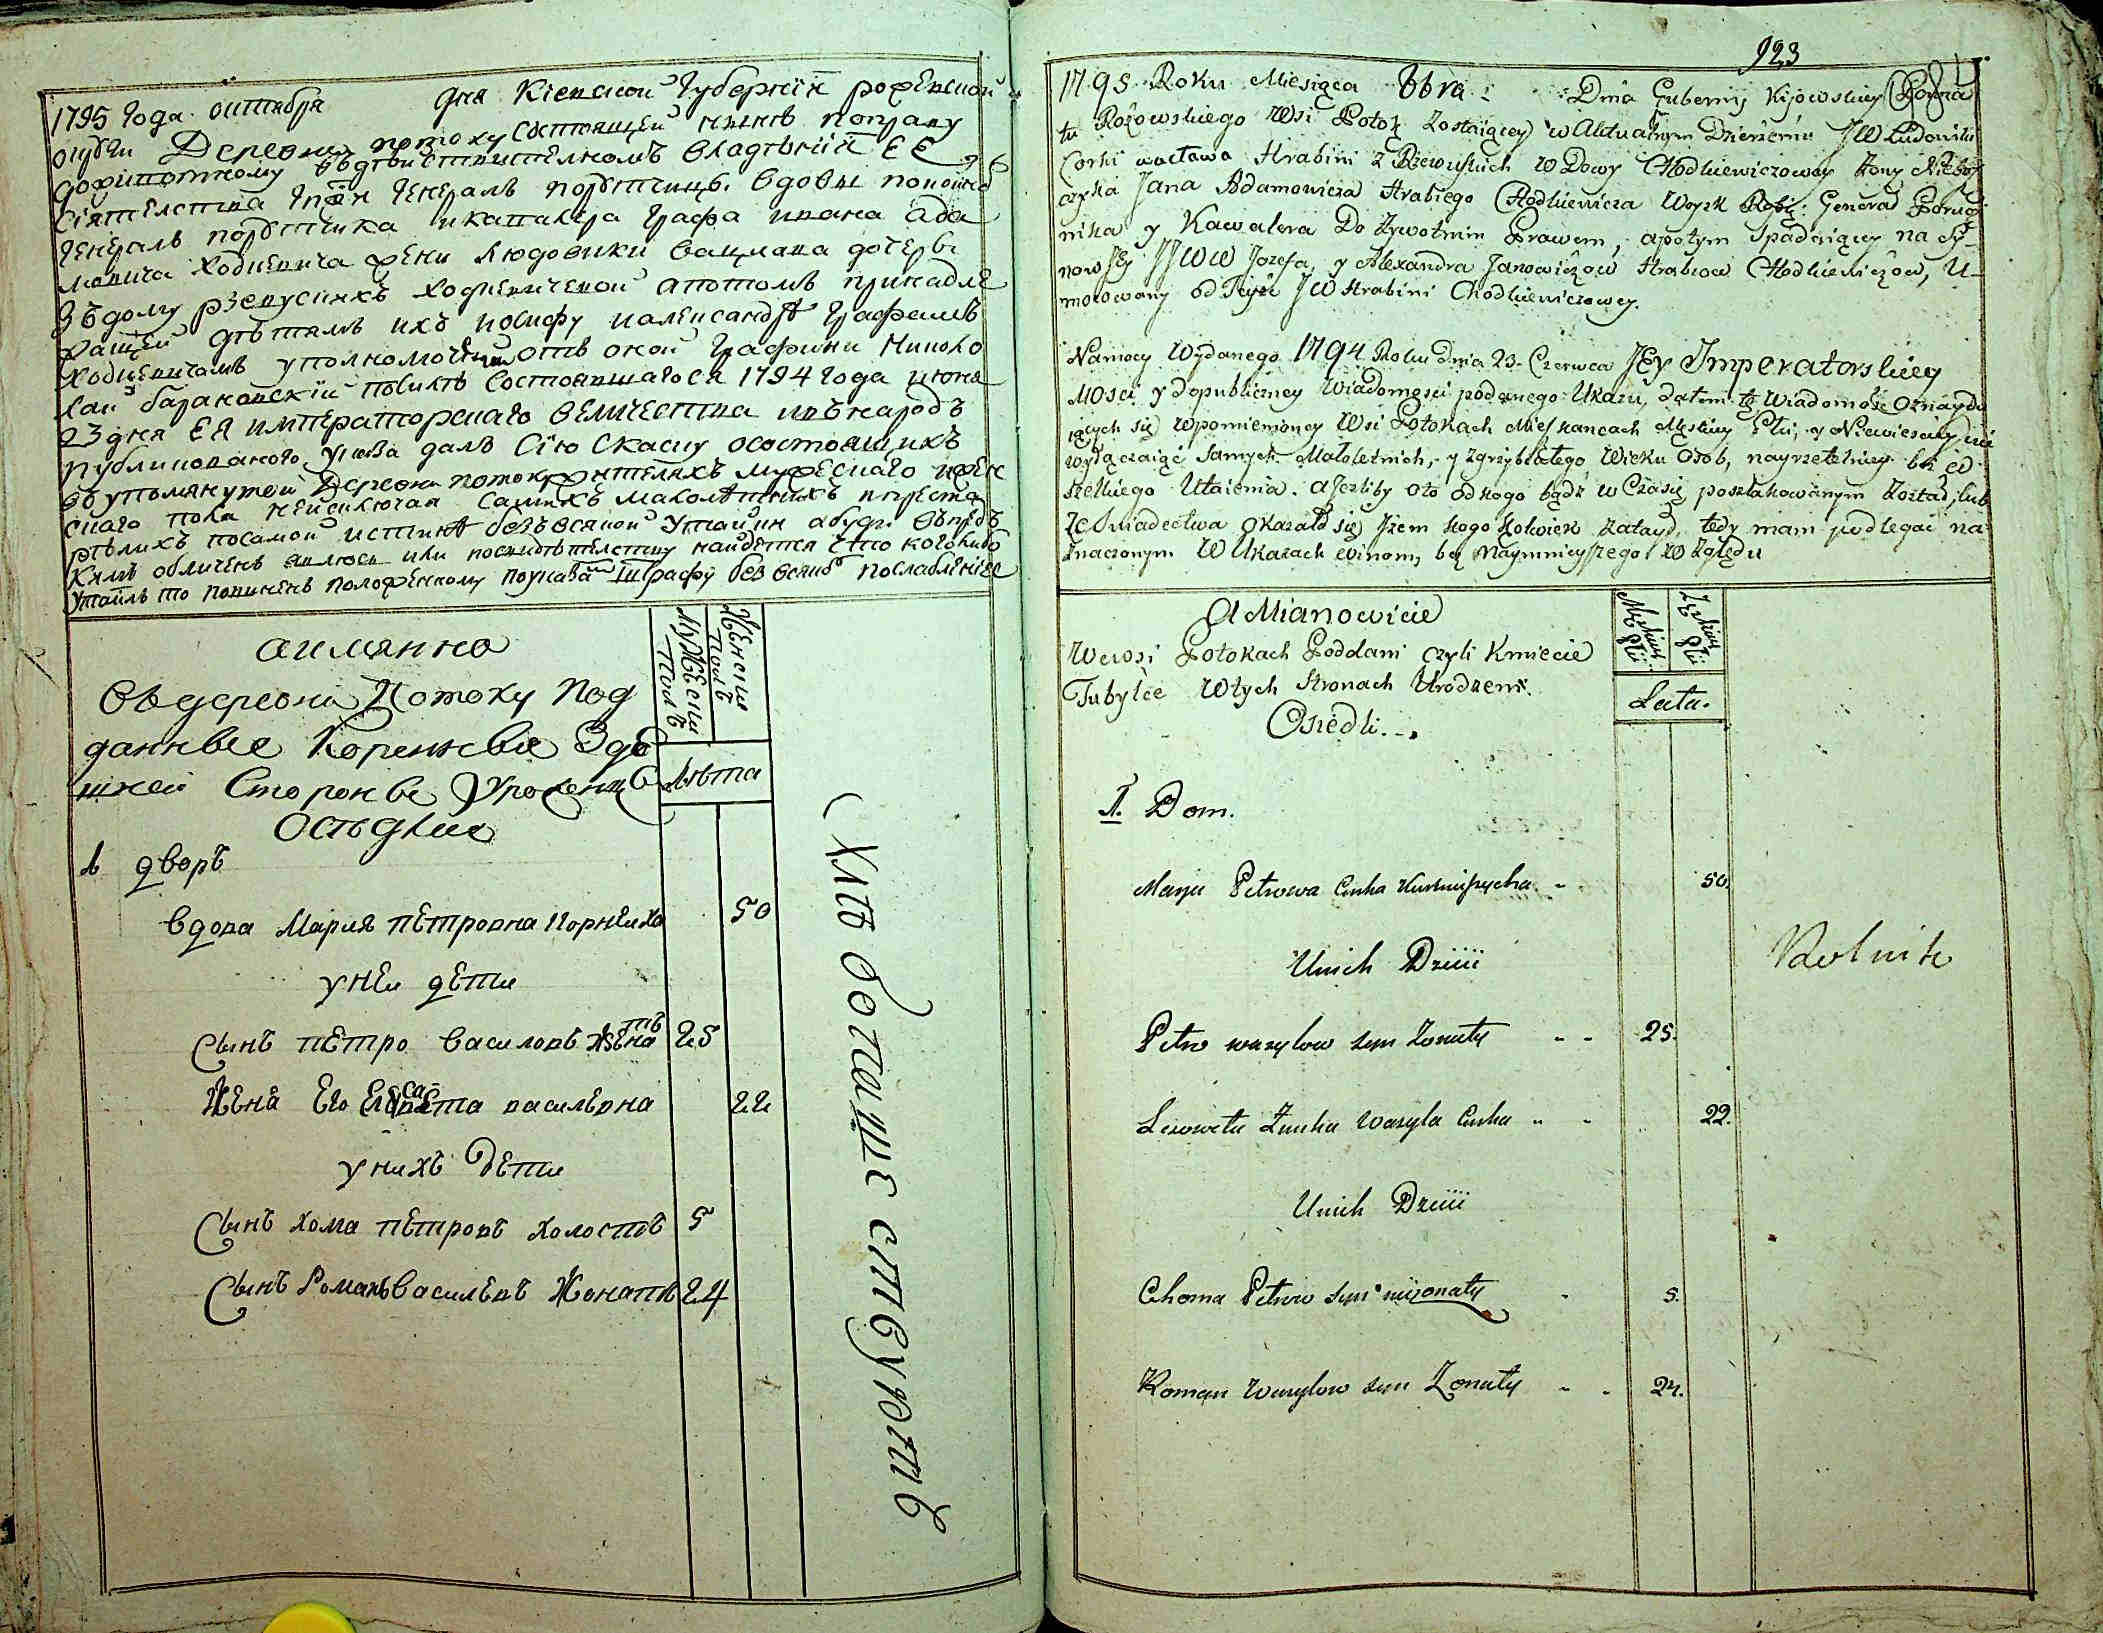 1795 Года октября дня Кіевской Губерніи рожевской
округи Деревни потоку состоящей нынѣ поправу
дожитотному въдѣйствителномъ владѣнии ЕЕ
Сіятелства Гпжи Генералъ порутчицы вдовы покойнаго
Генералъ порутчика икавалера Графа ивана ада
мовича Ходкевича жени людовики вацлава дочери
Зъдому ржевускихъ ходкевичевой апотомъ принадле
жащей дѣтямъ ихъ иосифу иалександру Графамъ
Ходкевичамъ уполномоченный отъ оной Графини Николо
лай барановскій посилѣ состоявшагося 1794 года июня
23 дня ЕЯ императорскаго величества ивънародъ
публикованого указа далъ Сію Скаску осостоящихъ
въупомянутой Деревни потоку жителяхъ мужескаго ижен
скаго пола неисключая самихъ малолѣтнихъ ипреста
рѣлихъ посамой истинѣ безъвсякой утайки абуди въпредь
кѣмъ обличенъ явлюсь или посвидѣтелству найдется что коголибо
утаилъ то повиненъ положенному поуказамъ штрафу безъ всякого послабления
аимянно
Въдеревни Потоку Под
данные Коренные Здѣ
шней Стороны Уроженцы
Осѣдлие
Мужески Полъ
Женски полъ
Лѣта
1 дворъ
вдова Мария петровна Корнѣиха 50
уней дети
Сынъ петро василовъ женатъ 25
Жена Его Елисавета василевна 22
унихъ дети
Сынъ хома петровъ холостъ 5
Сынъ Романъ василевъ Женатъ 24
Хлѣбопашествуютъ
923
1795 Roku Miesiąca 8bra Dnia Gubernij Kijowskiey Powia
tu Rożowskiego Wsi Potok zostaiącey w Aktualnym Dzierzeniu JW Ludowiki
Corki wacława Hrabini z Rzewuskich W Dowy Chodkiewiczowey Żony Nieboſ
czyka Jana Adamowicza Hrabiego Chodkiewicza Woysk Roſſ: Generał Porucz
nika y Kawalera Do Żywotnim Prawem, apotym Spadaiącey na Sy-
now Jey JJWW Jozefa y Alexandra Janowiczow Hrabiow Chodkiewiczow, U-
mocowany od Teyże JW Hrabini Chodkiewiczowey.
Namocy Wydanego 1794 Roku Dnia 23. Czerwca JEy Imperatorskiey
Mosci y dopubliczney Wiadomosci podanego Ukazu, datem tę Wiadomość oznaydu
iących się wpomienioney Wsi Potokach Mieſzkancach Męskiey Płci, y Niewieściey nie
wyłączaiąc samych Małoletnich, y zgrzybiałego Wieku Osob, nayrzetelniey bez w
szelkiego Utaienia. aJeżliby oto odkogo bądź w Czasie poszlakowanym został, lub
ze Swiadectwa okazało się żem kogo kolwiek zataył, tedy mam podlegać na
znaczonym w Ukazach winom, bez Naymnieyſzego względu
A Mianowicie
Wewsi Potokach Poddani czyli Kmiecie
Tubylce Wtych Stronach Urodzeni.
Osiedli.
Męskiey Płci
Żeńskiey Płci
Lata.
1. Dom.
Marya Petrowa Curka 50.
Unieh Dzieci
Rolnik
Petro wasylow syn Zonaty 25.
Lisoweta Zonka Wasyla Curka 22.
Unich Dzieci
Choma Petrow syn niezonaty 5.
Roman Wasylow syn Zonaty 24.